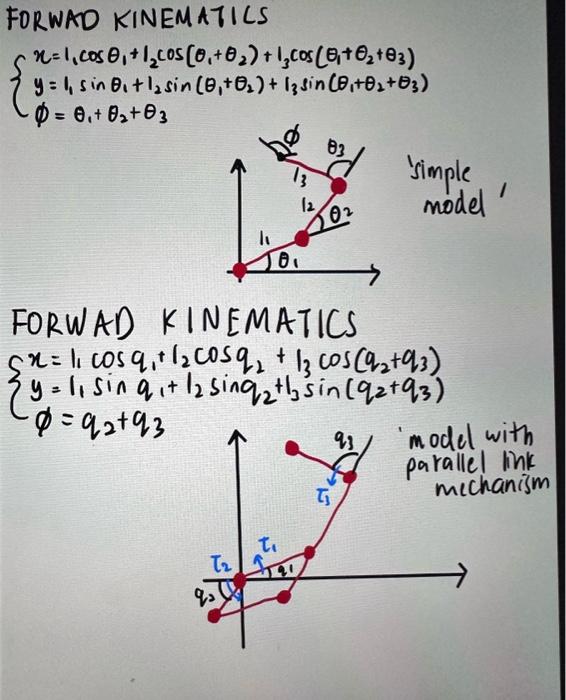 FORWAD KINEMATICS
x = l₁ cos θ₁ + l₂ cos(θ₁+θ₂) + l₃ cos(θ₁+θ₂+θ3)
y = l₁ sin θ₁ + l₂ sin(θ₁+θ₂) + l₃ sin(θ₁+θ₂+θ3)
ϕ = θ₁ + θ₂ + θ₃
ϕ
θ3
l₃
'simple model'
l₂
θ₂
l₁
θ₁
FORWAD KINEMATICS
x = l₁ cos q₁ + l₂ cos q₂ + l₃ cos(q₂+q₃)
y = l₁ sin q₁ + l₂ sin q₂ + l₃ sin(q₂+q₃)
ϕ = q₂+q₃
q₃
'model with
parallel link
mechanism
τ₃
τ₁
τ₂
q₁
q₂